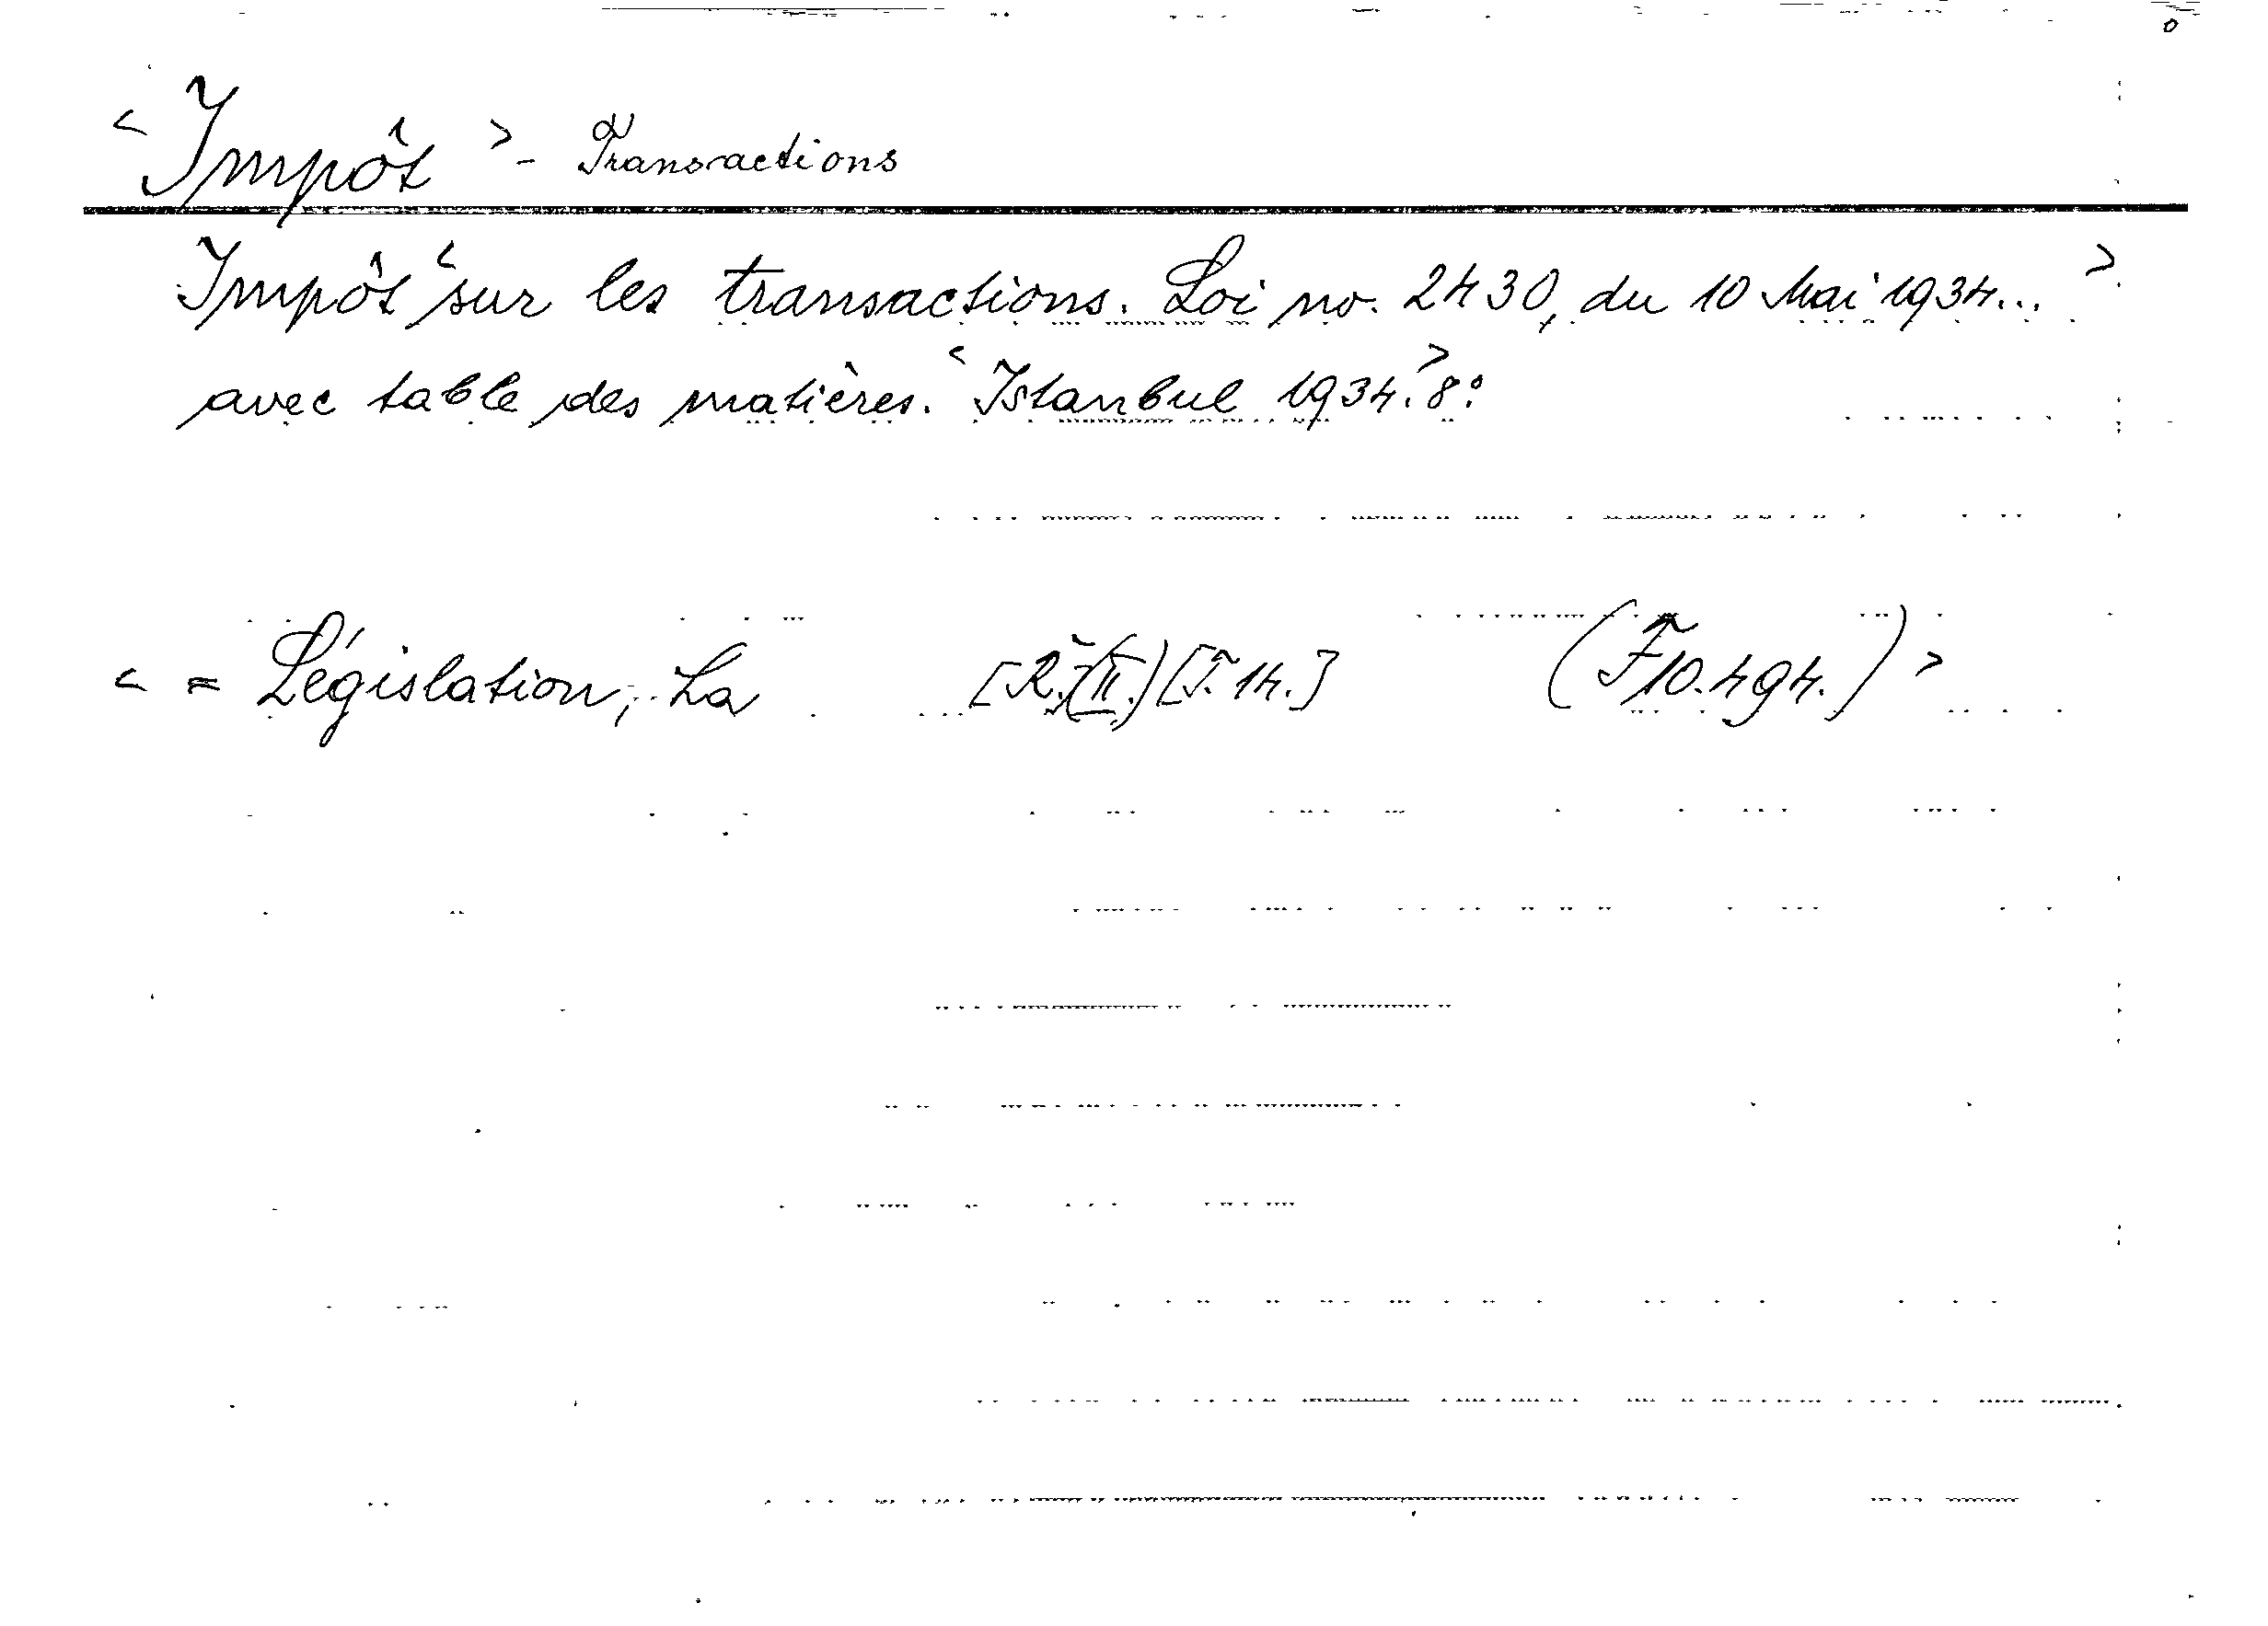 < Impôt > - Transactions
Impôt < sur les transactions. Loi no. 2430, du 10 Mai 1934... >
avec table des matières. < Istanbul 1934. > 8°.
< = Législation, La [R. (II.)] [T. 14.] (F 10.494.) >